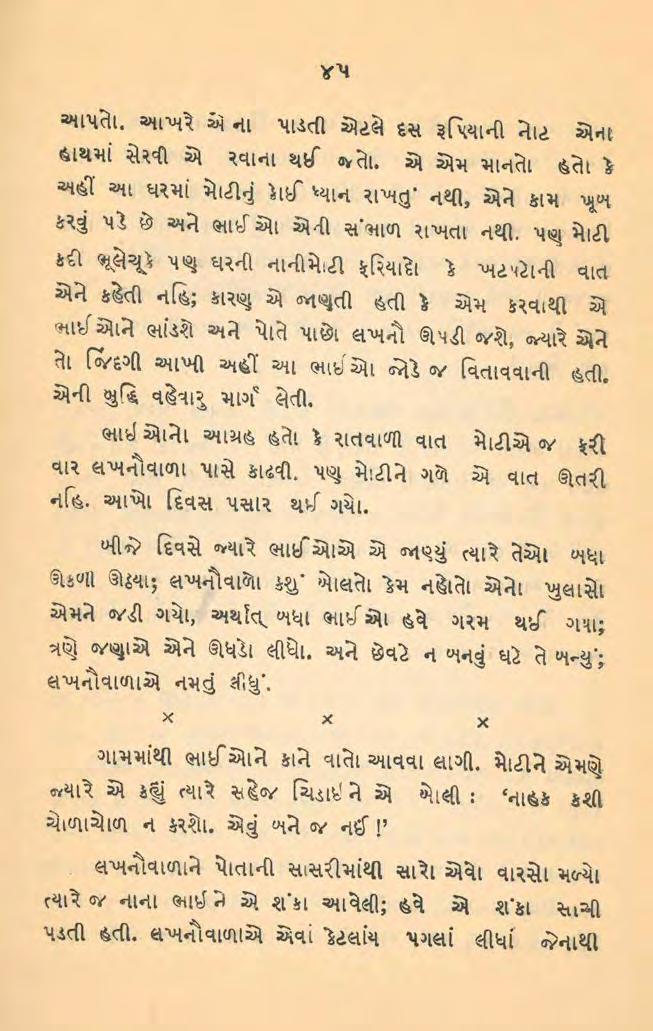 ૪૫
આપતો. આખરે એ ના પાડતી એટલે દસ રૂપિયાની નોટ એના
હાથમાં સેરવી એ રવાના થઈ જતો. એ એમ માનતો હતો કે
અહીં આ ઘરમાં મોટીનું કોઈ ધ્યાન રાખતું નથી, એને કામ ખૂબ
કરવું પડે છે અને ભાઈઓ એની સંભાળ રાખતા નથી. પણ મોટી
કદી ભૂલેચૂકે પણ ઘરની નાનીમોટી ફરિયાદો કે ખટપટોની વાત
એને કહેતી નહિ; કારણ એ જાણતી હતી કે એમ કરવાથી એ
ભાઈઓને ભાંડશે અને પોતે પાછો લખનૌ ઊપડી જશે, જ્યારે એને
તો જિંદગી આખી અહીં આ ભાઈઓ જોડે જ વિતાવવાની હતી.
એની બુદ્ધિ વહેવારુ માર્ગ લેતી.
ભાઈઓનો આગ્રહ હતો કે રાતવાળી વાત મોટીએ જ ફરી
વાર લખનૌવાળા પાસે કાઢવી. પણ મોટીને ગળે એ વાત ઊતરી
નહિ. આખો દિવસ પસાર થઈ ગયો.
બીજે દિવસે જ્યારે ભાઈઓએ એ જાણ્યું ત્યારે તેઓ બધા
ઊકળી ઊઠ્યા; લખનૌવાળો કશું બોલતો કેમ નહોતો એનો ખુલાસો
એમને જડી ગયો, અર્થાત્ બધા ભાઈઓ હવે ગરમ થઈ ગયા;
ત્રણે જણાએ એને ઊધડો લીધો. અને છેવટે ન બનવું ઘટે તે બન્યું;
લખનૌવાળાએ નમતું દીધું.
× × ×
ગામમાંથી ભાઈઓને કાને વાતો આવવા લાગી. મોટીને એમણે
જ્યારે એ કહ્યું ત્યારે સહેજ ચિડાઈને એ બોલી : ‘નાહક કશી
ચોળાચોળ ન કરશો. એવું બને જ નઈ !’
લખનૌવાળાને પોતાની સાસરીમાંથી સારો એવો વારસો મળ્યો
ત્યારે જ નાના ભાઈને એ શંકા આવેલી; હવે એ શંકા સાચી
પડતી હતી. લખનૌવાળાએ એવાં કેટલાંય પગલાં લીધાં જેનાથી